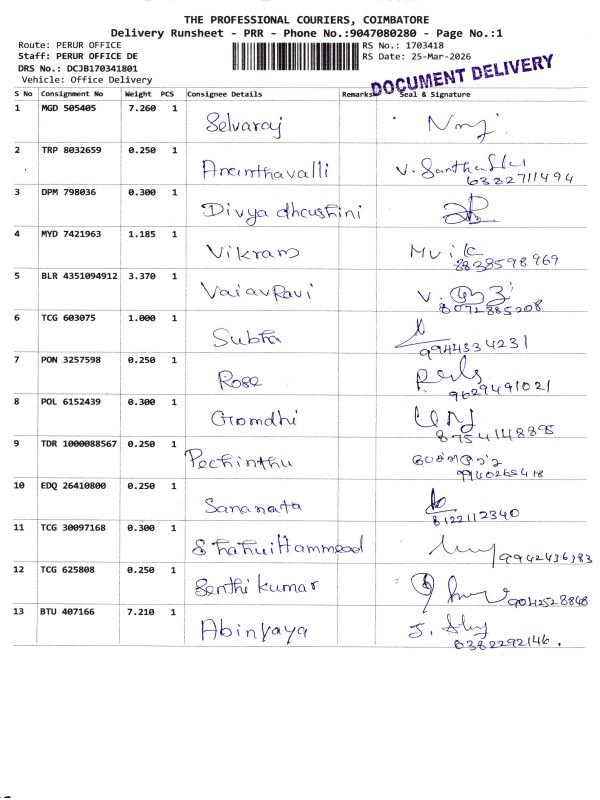 THE PROFESSIONAL COURIERS, COIMBATORE
Delivery Runsheet - PRR - Phone No.:9047080280 - Page No.:1
Route: PERUR OFFICE RS No.: 1703418
Staff: PERUR OFFICE DE RS Date: 25-Mar-2026
DRS No.: DCJB170341801
DOCUMENT DELIVERY
Vehicle: Office Delivery
S No Consignment No Weight PCS Consignee Details Remarks Seal & Signature
1 MGD 505405 7.260 1 Selvaraj
2 TRP 8032659 0.250 1 Ananthavalli V. Santha
6382711494
3 DPM 798036 0.300 1 Divya dharshini
4 MYD 7421963 1.185 1 Vikram
8838598969
5 BLR 4351094912 3.370 1 V.
8072885208
6 TCG 603075 1.000 1 Subha
9944334231
7 PON 3257598 0.250 1 Rose
9629491021
8 POL 6152439 0.300 1
8754148895
9 TDR 1000088567 0.250 1 Pechinthu
9940265418
10 EDQ 26410800 0.250 1
8122112340
11 TCG 30097168 0.300 1
12 TCG 625808 0.250 1 Senthi kumar
9042528848
13 BTU 407166 7.210 1 Abinyaya J.
6382292146.